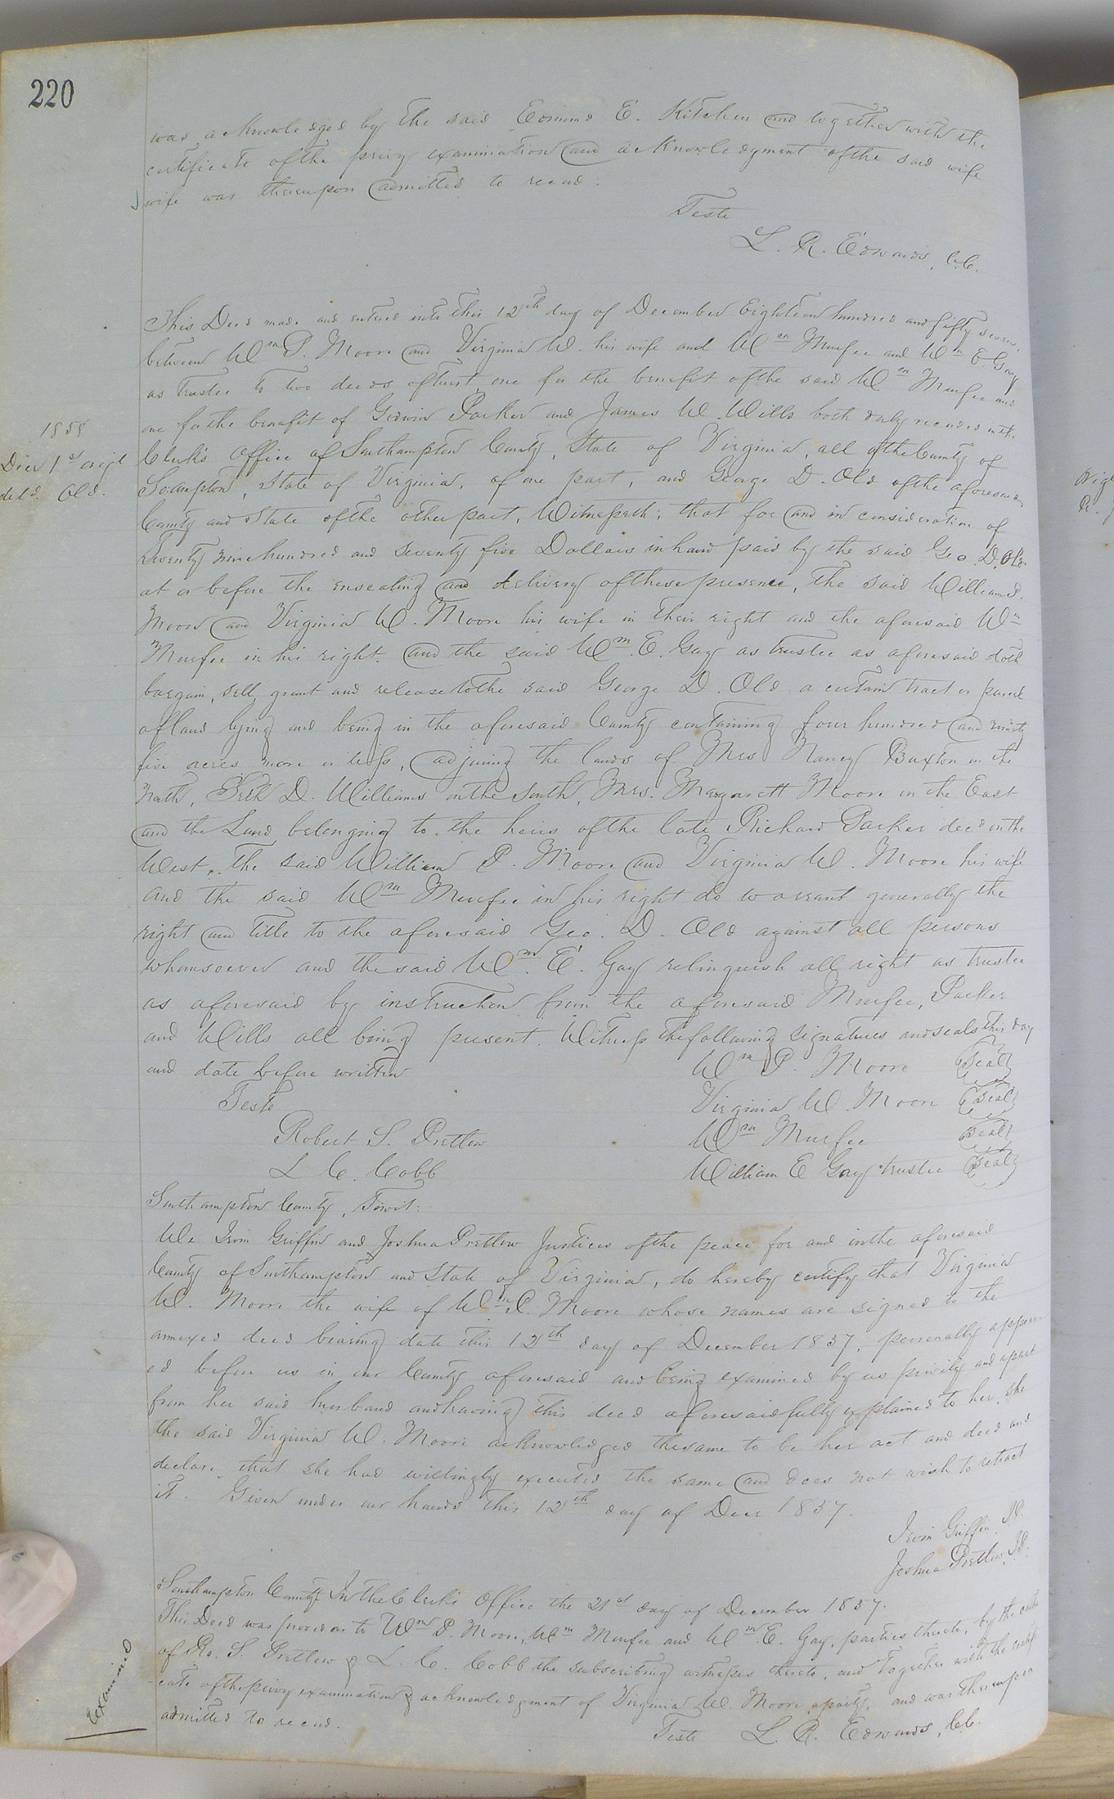 220
was acknowledged by the said Edmund E. Kitchen and together with the
certificate of the privy examination and acknowledgment of the said wife
wife was thereupon admitted to record.
Teste
L. R. Edwards, C.C.
This Deed made and entered into this 12th day of December Eighteen hundred and fifty seven,
between Wm P. Moore and Virginia W. his wife and Wm Murfee and Wm E. Gay
as trustee to two deeds of trust, one for the benefit of the said Wm Murfee and
one for the benefit of Godwin Parker and James W. Wills both duly recorded in the
Clerk's Office of Southampton County, State of Virginia, all of the County of
Soampton, State of Virginia, of one part, and George D. Old of the aforesaid
County and State of the other part, Witnesseth; that for and in consideration of
Twenty nine hundred and seventy five Dollars in hand paid by the said Geo. D. Old
at or before the ensealing and delivery of these presence, the said William P.
Moore and Virginia W. Moore his wife in their right and the aforesaid Wm
Murfee in his right and the said Wm. E. Gay as trustee as aforesaid doth
bargain, sell, grant and release to the said George D. Old a certain tract or parcel
of land lying and being in the aforesaid County containing four hundred and ninety
five acres more or less, adjoining the lands of Mrs Nancy Buxton on the
North, D. Williams on the South, Mrs. Margarett Moore on the East
and the Land belonging to the heirs of the late Richard Parker decd on the
West. The said William P. Moore and Virginia W. Moore his wife
and the said Wm Murfee in his right do warrant generally the
right and title to the aforesaid Geo. D. Old against all persons
whomsoever and the said Wm. E. Gay relinquish all right as trustee
as aforesaid by instruction from the aforesaid Murfee, Parker
and Wills all being present. Witness the following signatures and seals this day
and date before written
Wm P. Moore (Seal)
Teste
Virginia W. Moore (Seal)
Robert S. Pretlow
Wm Murfee (Seal)
L. C. Cobb
William E Gay trustee (Seal)
Southampton County, Towit:
We Irvin Griffin and Joshua Pretlow Justices of the peace for and in the aforesaid
County of Southampton and State of Virginia, do hereby certify that Virginia
W. Moore the wife of Wm P. Moore whose names are signed to the
annexed deed bearing date this 12th day of December 1857, personally appear
ed before us in our County aforesaid and being examined by us privily and apart
from her said husband and having this deed aforesaid fully explained to her, she
the said Virginia W. Moore acknowledged the same to be her act and deed and
declare that she had willingly executed the same and does not wish to retract
it. Given under our hands this 12th day of Decr 1857.
Irvin Griffin J.P.
Joshua Pretlow J.P.
Southampton County In the Clerk's Office the 21st day of December 1857.
This Deed was proven as to Wm P. Moore, Wm Murfee and Wm E. Gay, parties thereto, by the oaths
of Ro. S. Pretlow & L. C. Cobb the subscribing witnesses thereto, and together with the certifi
cate of the privy examination & acknowledgment of Virginia W. Moore a party, and was thereupon
admitted to record.
Teste L. R. Edwards, C.C.
1858
1st
deld. Old.
Examined